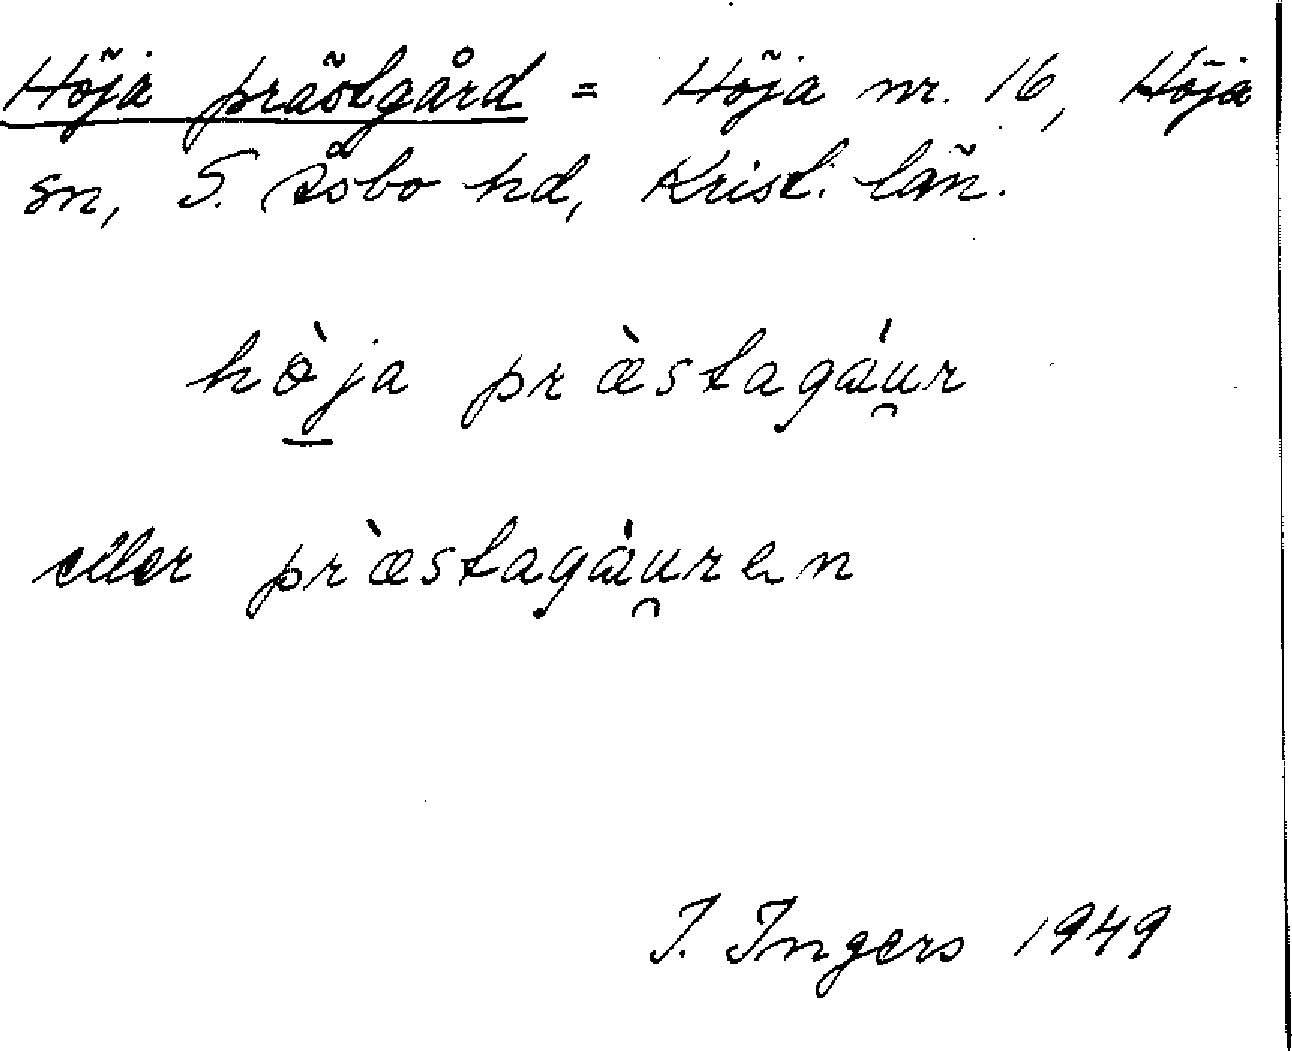 Höja prästgård = Höja nr. 16, Höja
sn, S. Åsbo hd, Krist. län.
hö̀ja præ̀stagáu̯r
eller præ̀stagáu̯ren
I. Ingers 1949